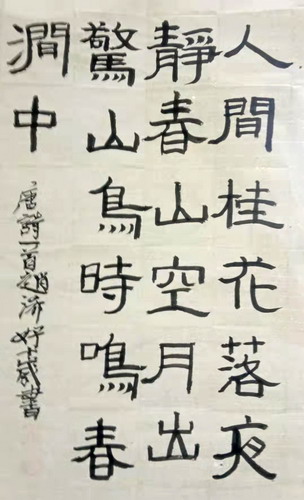 人間桂花落夜
靜春山空月出
驚山鳥時鳴春
澗中
唐詩一首趙济妤十歲書